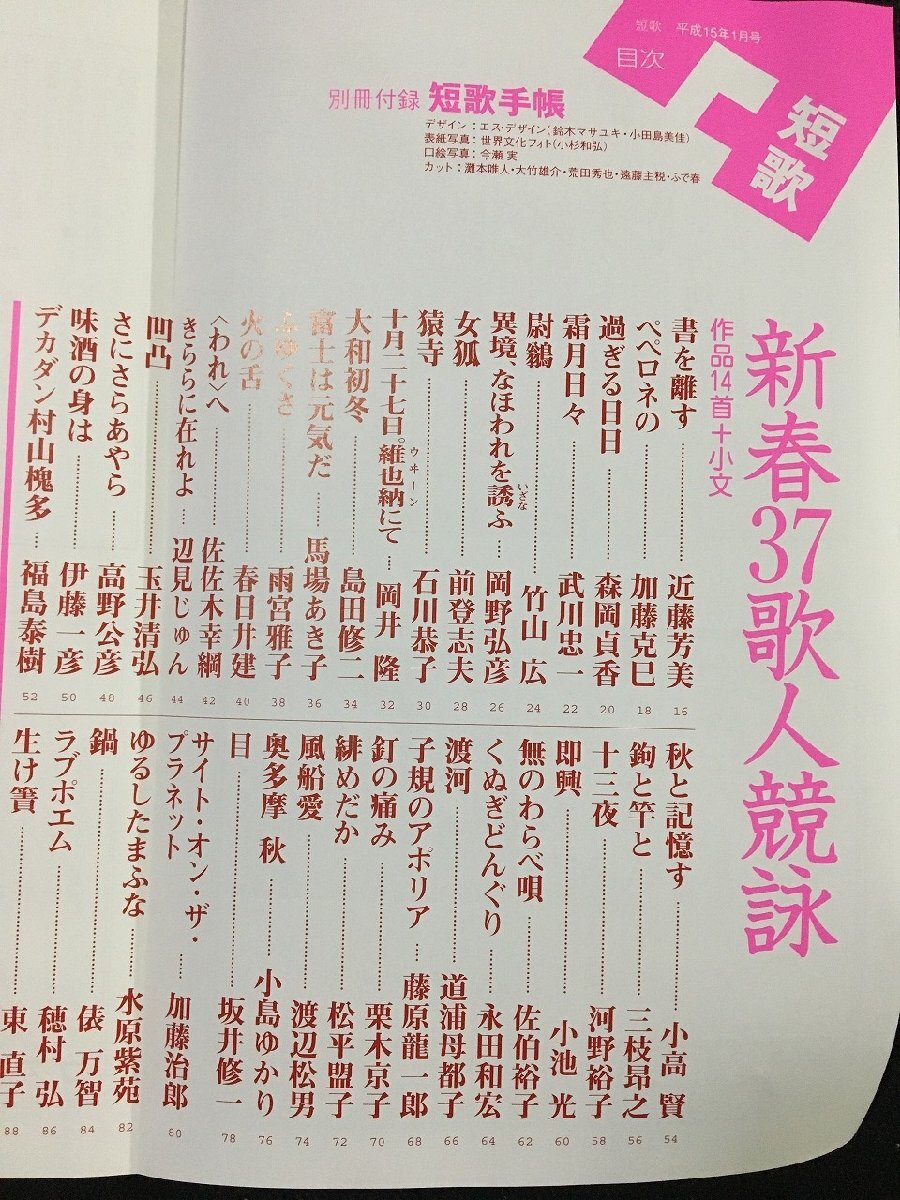 短歌 平成15年1月号
目次
短歌
別冊付録 短歌手帳
デザイン:エス・デザイン(鈴木マサユキ・小田島美佳)
表紙写真:世界文化フォト(小杉和弘)
口絵写真:今瀬 実
カット:灘本唯人・大竹雄介・荒田秀也・遠藤主税・ふで春
新春37歌人競詠
作品14首十小文
書を離す……近藤芳美 16
ペペロネの……加藤克巳 18
過ぎる日日……森岡貞香 20
霜月日々……武川忠一 22
尉鶲……竹山 広 24
異境、なほわれを誘ふ……岡野弘彦 26
いざな
女狐……前登志夫 28
猿寺……石川恭子 30
十月二十七日。維也納にて……岡井 隆 32
ウヰーン
大和初冬……島田修二 34
富士は元気だ……馬場あき子 36
ふゆくさ……雨宮雅子 38
火の舌……春日井建 40
〈われ〉へ……佐佐木幸綱 42
きららに在れよ……辺見じゅん 44
凹凸……玉井清弘 46
さにさらあやら……高野公彦 48
味酒の身は……伊藤一彦 50
デカダン村山槐多……福島泰樹 52
秋と記憶す……小高 賢 54
鉤と竿と……三枝昂之 56
十三夜……河野裕子 58
即興……小池 光 60
無のわらべ唄……佐伯裕子 62
くぬぎどんぐり……永田和宏 64
渡河……道浦母都子 66
子規のアポリア……藤原龍一郎 68
釘の痛み……栗木京子 70
緋めだか……松平盟子 72
風船愛……渡辺松男 74
奥多摩 秋……小島ゆかり 76
目……坂井修一 78
サイト・オン・ザ・
プラネット……加藤治郎 80
ゆるしたまふな……水原紫苑 82
鍋……俵 万智 84
ラブポエム……穂村 弘 86
生け簀……東 直子 88